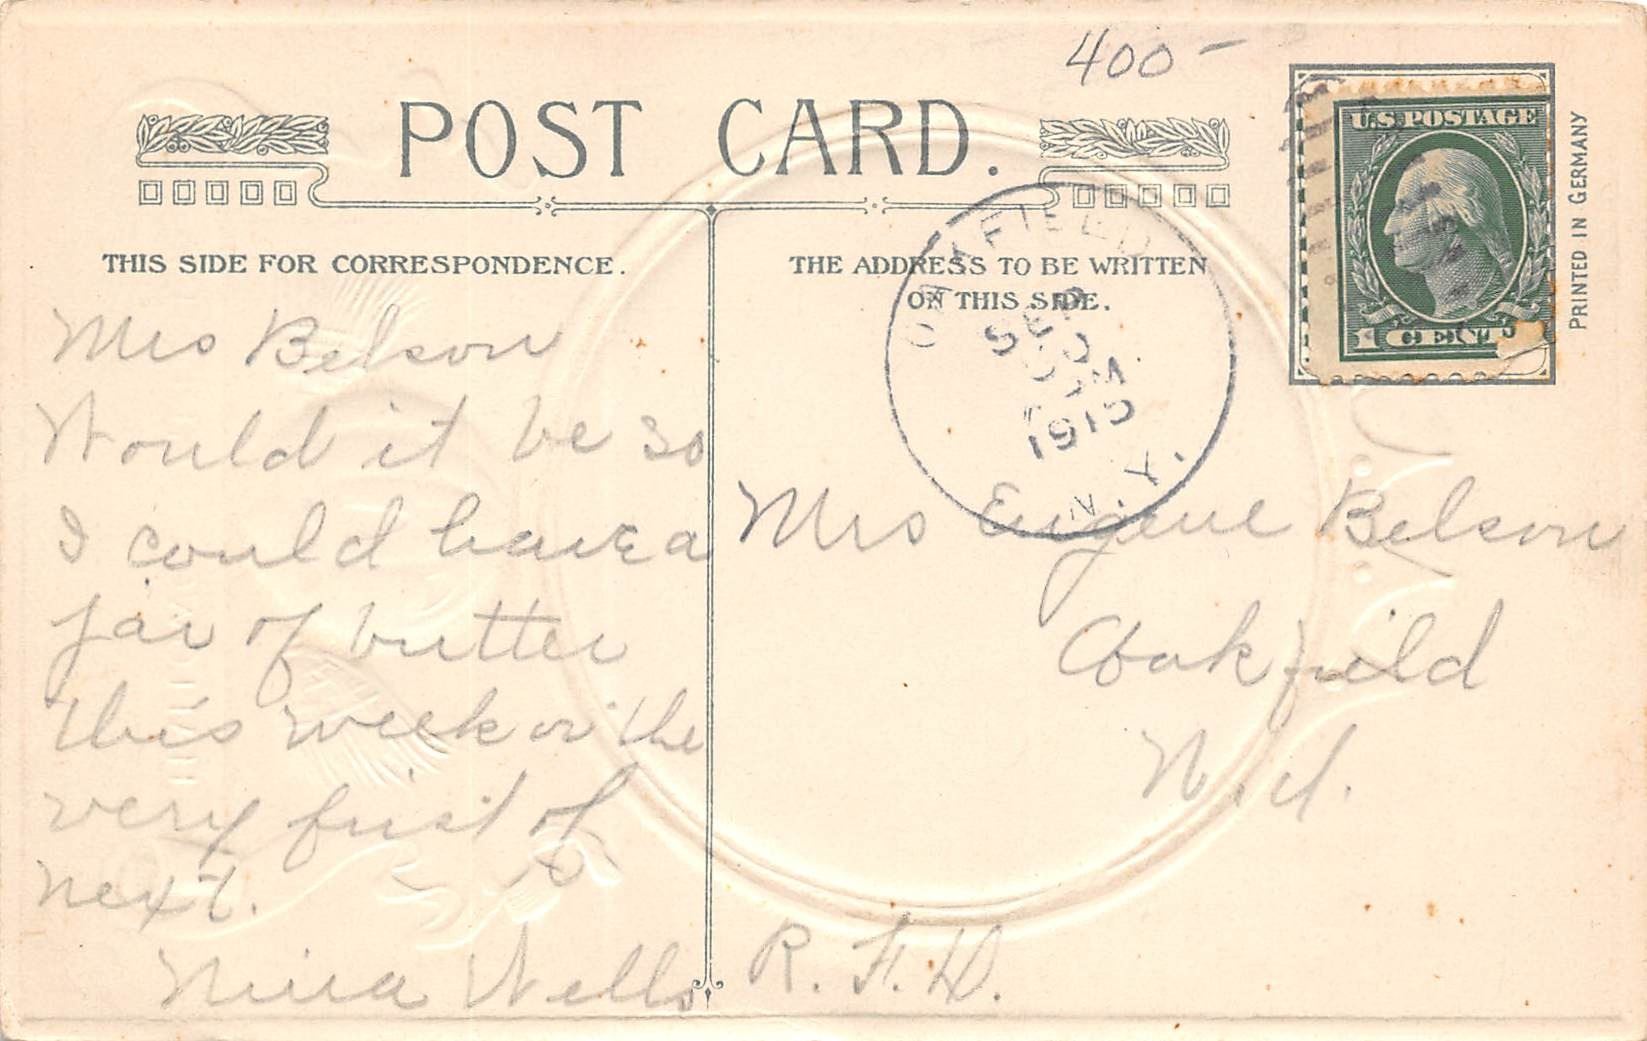 400-
POST CARD.
THIS SIDE FOR CORRESPONDENCE.
THE ADDRESS TO BE WRITTEN
ON THIS SIDE.
U.S. POSTAGE
1 CENT
PRINTED IN GERMANY
OAKFIELD
SEP
M
N.Y.
Mrs Belson
Would it be so
I could have a
jar of butter
this week or the
very first of
next.
Nina Wells
Mrs Eugene Belson
Oakfield
N.Y.
R.F.D.